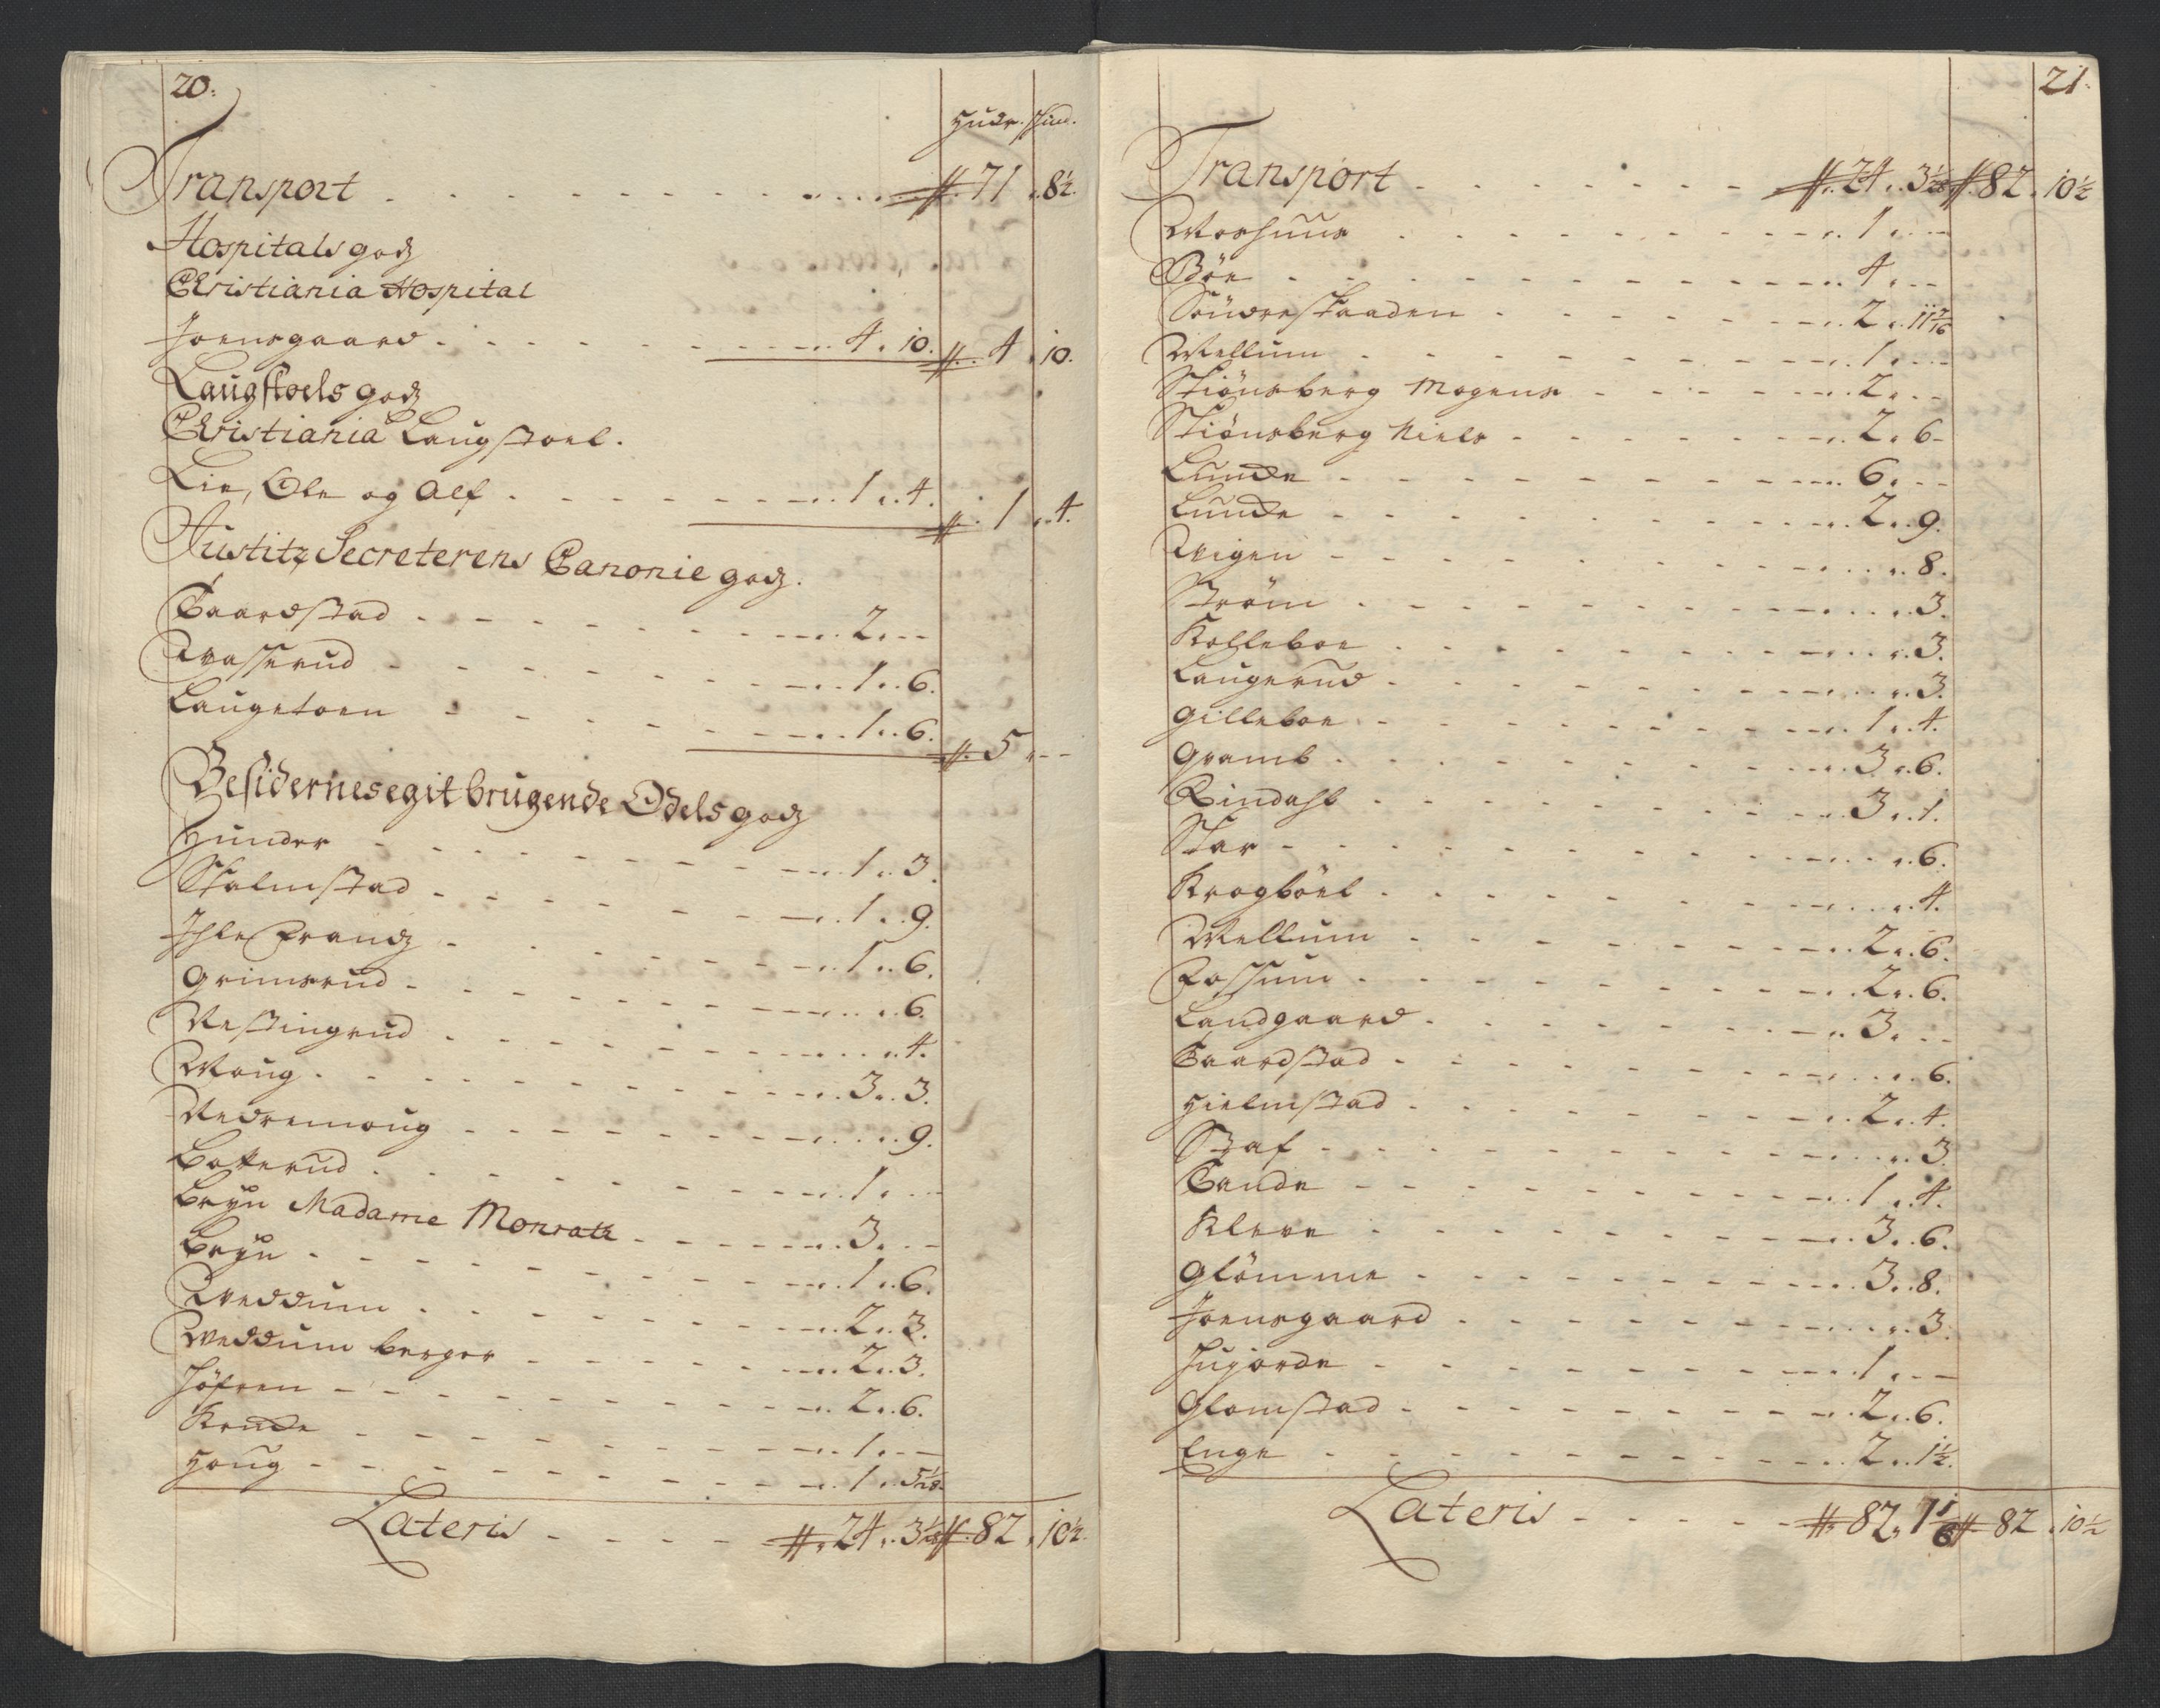 20.
Hudr. skind.
Transport . . . . . . . . . # 71 . 8½.
Hospitals godz
Christiania Hospital
Joensgaard . . . . . . . 4 . 10. # . 4 . 10.
Laugstoels godz
Christiania Laugstoel.
Lie, Ole og Alf . . . . . . 1 . 4. # . 1 . 4.
Justitz Secreterens Canonie godz.
Baardstad . . . . . . . 2 . - -
Qvasserud . . . . . . . 1 . 6.
Laugetoen . . . . . . . 1 . 6. # . 5 . - -
Besidernes egit brugende Odels godz
Hunder . . . . . . . 1 . 3.
Skalmstad . . . . . . . 1 . 9.
Ihle Frandz . . . . . . . 1 . 6.
Grimsrud . . . . . . . 6.
Nestingrud . . . . . . . 4.
Moug . . . . . . . 3 . 3.
Nedremoug . . . . . . . 9.
Botterud . . . . . . . 1 . - -
Bryn Madame Monrath . . . . . 3 . - -
Bryn . . . . . . . 1 . 6.
Qveddum . . . . . . . 2 . 3.
Qveddum berger . . . . . . 2 . 3.
Höfren . . . . . . . 2 . 6.
Krude . . . . . . . 1 . - -
Houg . . . . . . . 1 . 5 1/28.
Lateris . . . . # . 24 . 3 1/28 # . 82 . 10½.
21.
Transport . . . . . . # . 24 . 3 1/28 # 82 . 10½
Morhuus . . . . . . . 1 . - -
Böe . . . . . . . 4 . - -
Söndreskaaden . . . . . . 2 . 11 7/16
Mellum . . . . . . . 1 . - -
Skiönsberg Mogens . . . . . 2 . - -
Skiönsberg Niels . . . . . . 2 . 6 -
Lunde . . . . . . . 6 . - -
Lunde . . . . . . . 2 . 9.
Qvigen . . . . . . . 8.
Ström . . . . . . . 3.
Kolleboe . . . . . . . 3.
Laugerud . . . . . . . 3.
Gilleboe . . . . . . . 1 . 4.
Gramb . . . . . . . 3 . 6.
Rindahl . . . . . . . 3 . 1.
Star . . . . . . . 6.
Krogböel . . . . . . . 4.
Mellum . . . . . . . 2 . 6.
Fossum . . . . . . . 2 . 6.
Landgaard . . . . . . . 3 . - -
Baardstad . . . . . . . 6.
Hielmstad . . . . . . . 2 . 4.
Staf . . . . . . . 3
Sande . . . . . . . 1 . 4.
Kleve . . . . . . . 3 . 6.
Glömme . . . . . . . 3 . 8.
Joensgaard . . . . . . . 3.
Hujorde . . . . . . . 1 . - -
Glomstad . . . . . . . 2 . 6.
Enge . . . . . . . 2 . 1½.
Lateris . . . . . # . 82 . 7 1/6 # 82 . 10½